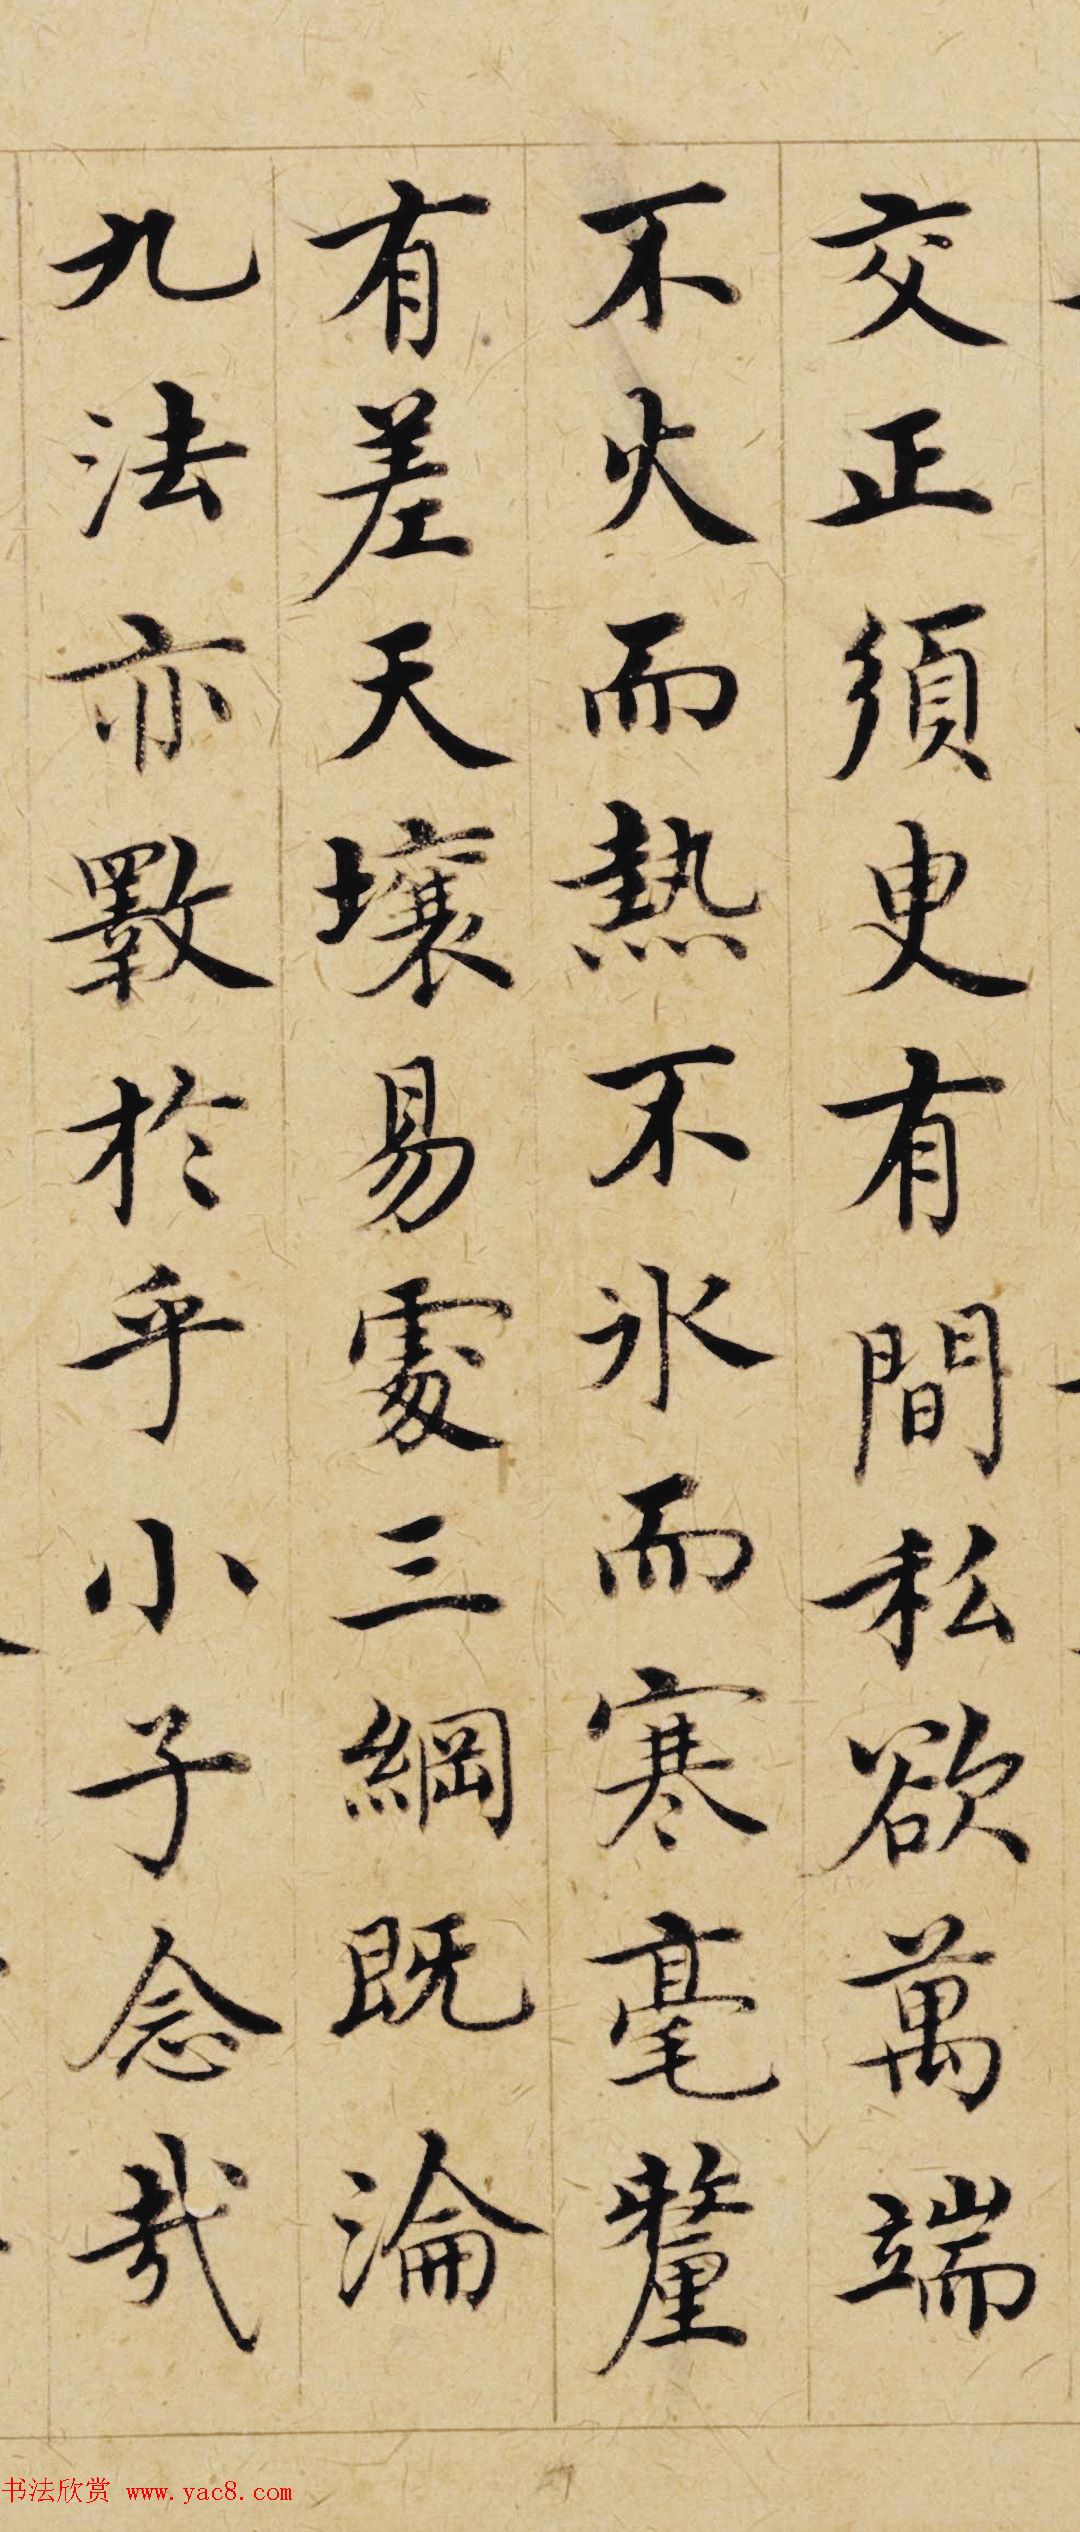 交正須臾有間私欲萬端
不火而熱不氷而寒毫釐
有差天壤易處三綱既淪
九法亦斁於乎小子念哉
书法欣赏 www.yac8.com